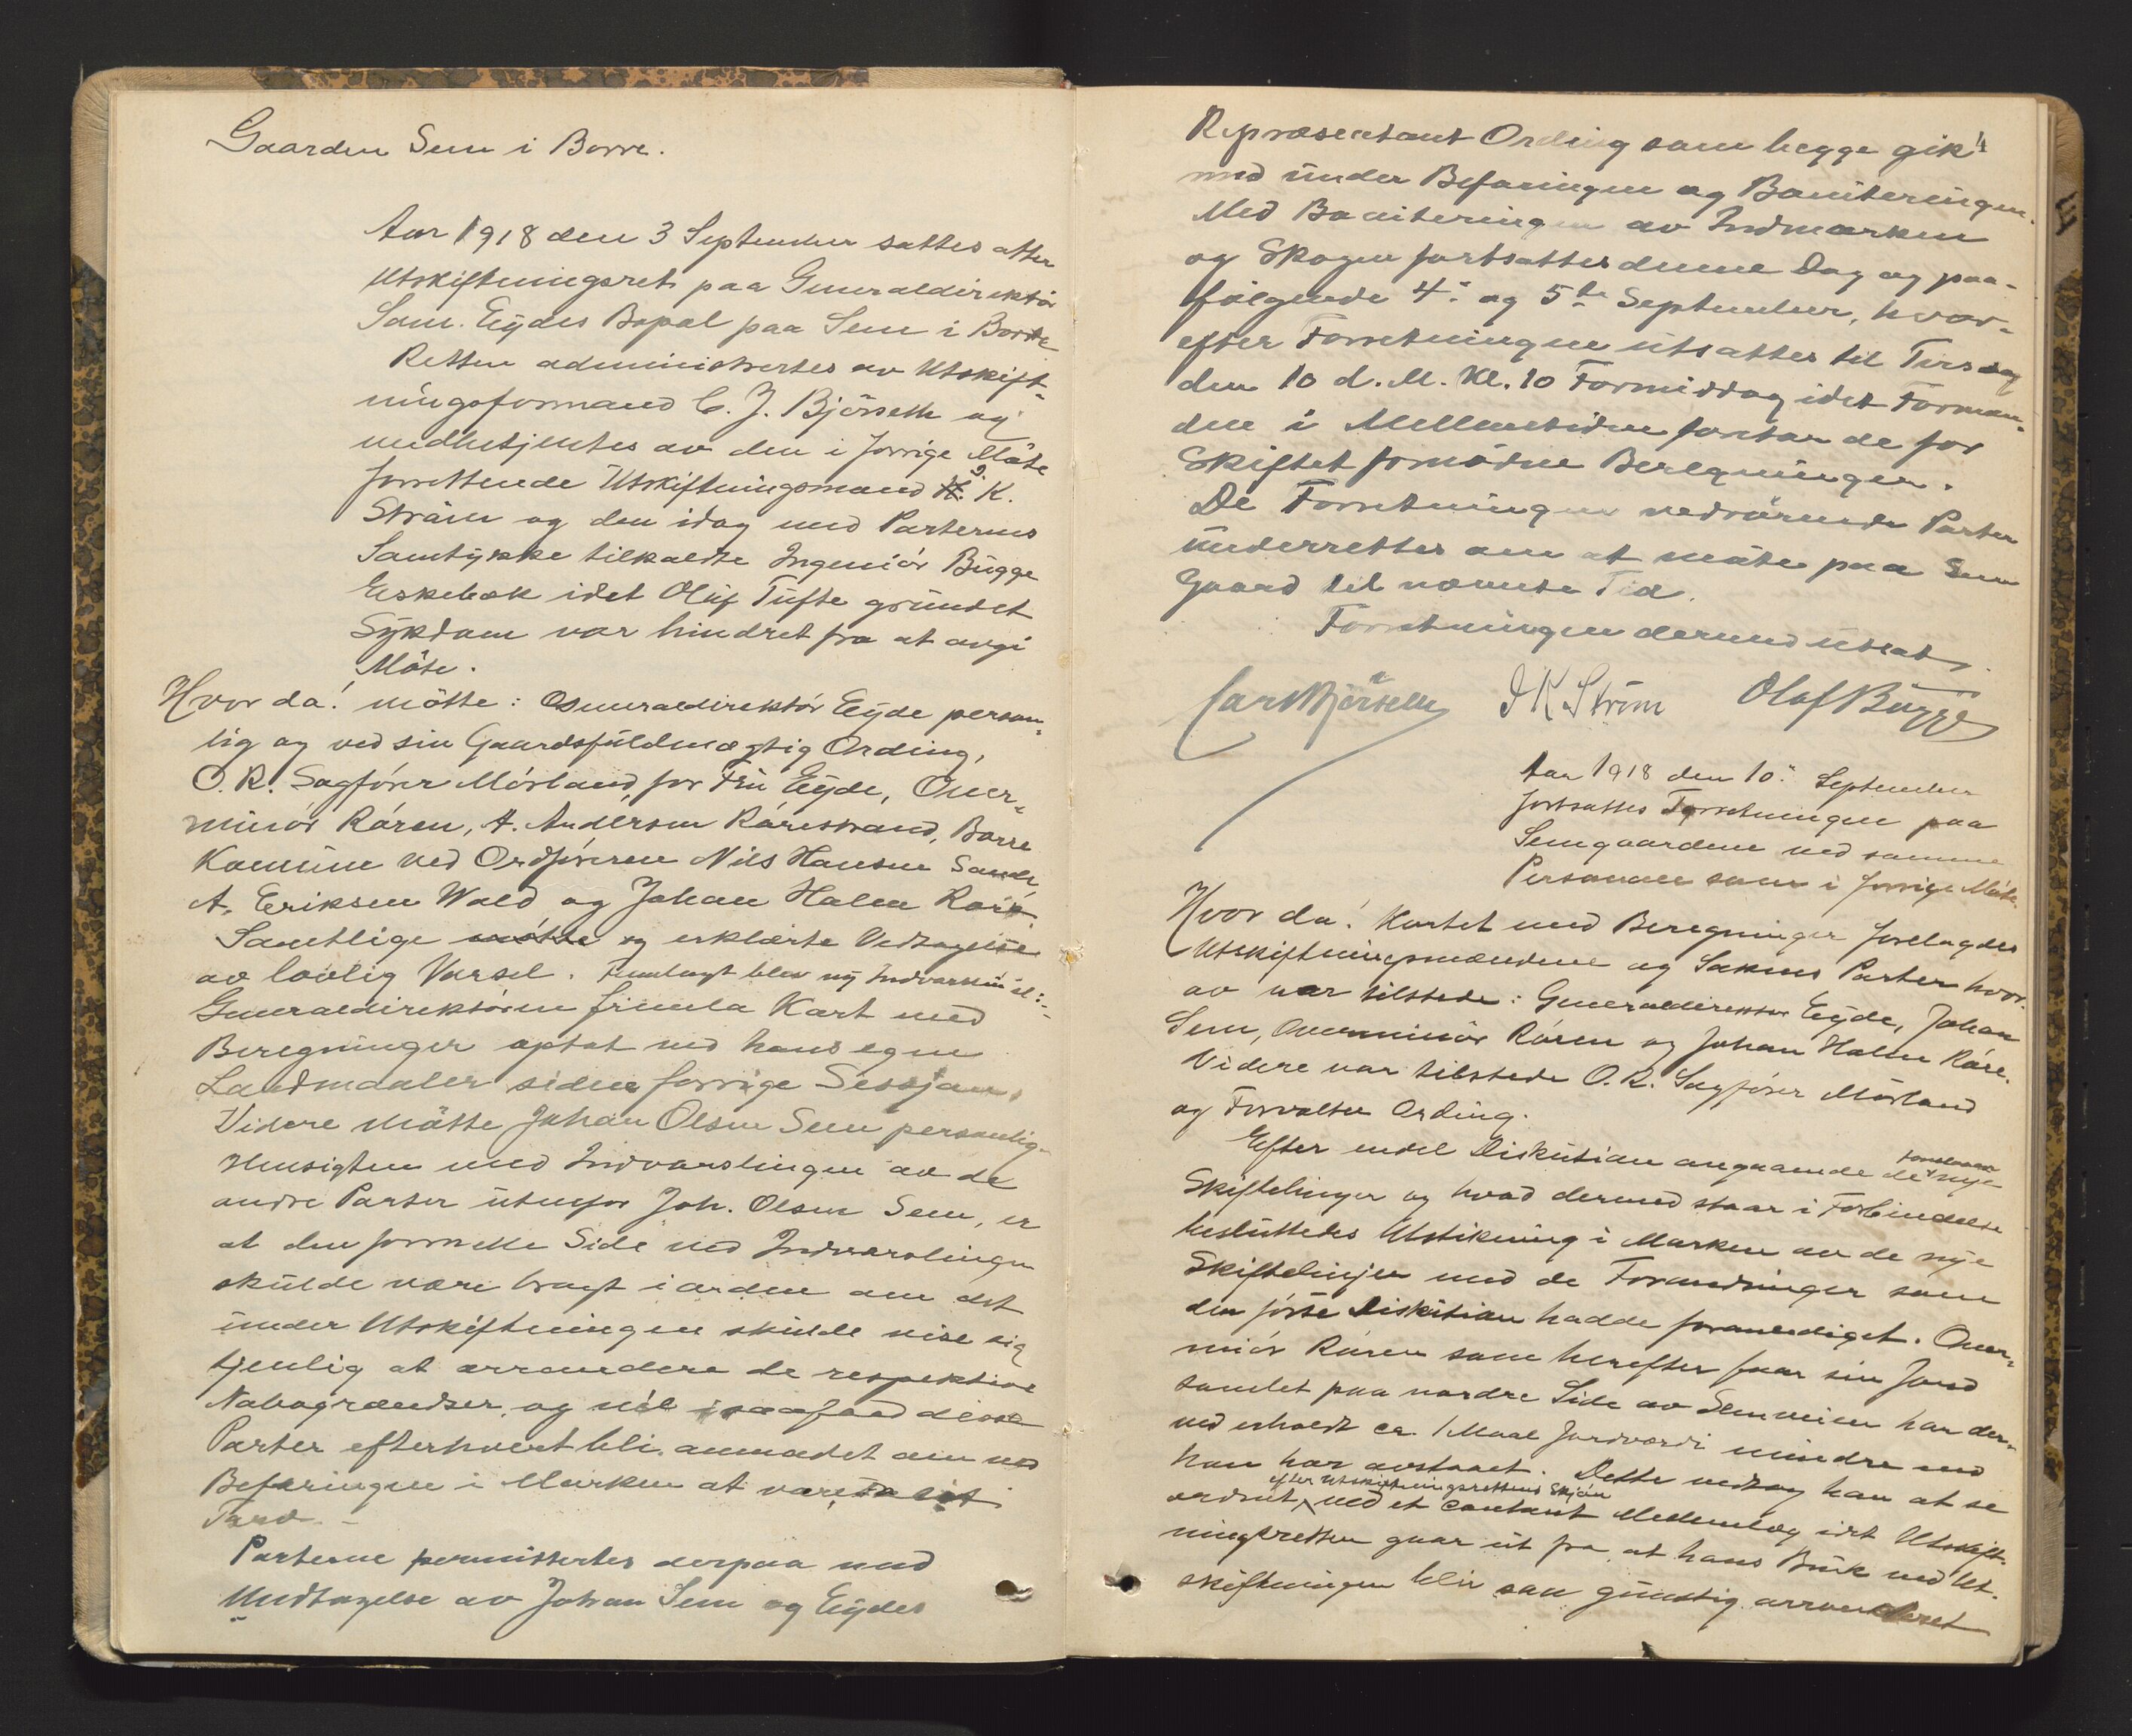 Gaarden Sem i Borre.
Aar 1918 den 3 September sattes atter
Utskiftningsret paa Generaldirektör
Sam. Eydes Bopæl paa Sem i Borre
Retten administrertes av Utskift-
ningsformand C. J. Bjørseth og
medbetjentes av den i forrige Möte
forrettende Utskiftningsmand J. K.
Ström og den idag med Parternes
Samtykke tilkaldte Ingeniör Bugge
Eskebæk idet Oluf Tufte grundet
Sykdom var hindret fra at avgi
Möte.
Hvor da! mötte: Generaldirektör Eyde person-
lig og ved sin Gaardsfuldmægtig Ording,
O. R. Sagförer Mörland, for Fru Eyde, Over-
minör Rören, A. Andersen Rörestrand, Borre
Komune ved Ordföreren Nils Hansen Sande,
A. Eriksen Wold og Johan Halen Rore
Samtlige og erklærte Vedtagelse
av lovlig Varsel. Fremlagt blev ny Indvarsling
Generaldirektören fremla Kart med
Beregninger optat ved hans egen
Landmaaler siden forrige Sessjon.
Videre mötte Johan Olsen Sem personlig.
Hensigten med Indvarslingen av de
andre Parter utenfor Joh. Olsen Sem, er
at den formelle Side ved Indvarslingen
skulde være bragt i orden om det
under Utskiftningen skulde vise sig
tjenlig at arrondere de respektive
Nabogrændser, og vil isaafald disse
Parter efterhvert bli anmodet om ved
Befaringen i Marken at vareta sit
Tarv. -
Parterne permittertes derpaa med
Undtagelse av Johan Sem og Eydes
4
Repræsentant Ording som begge gik
med under Befaringen og Boniteringen.
Med Boniteringen av Indmarken
og Skogen fortsattes denne Dag og paa-
følgende 4. og 5te September, hvor-
efter Forretningen utsattes til Tirsdag
den 10 d. M. Kl. 10 Formiddag idet Forman-
den i Mellemtiden foretar de for
Skiftet fornödne Beregninger.
De Forretningen vedrörende Parter
underrettes om at möte paa Sem
Gaard til nævnte Tid.
Forretningen dermed utsat.
Carl Bjørseth J K Ström Olaf Bugge
Aar 1918 den 10. September
fortsattes Forretningen paa
Semgaardene med samme
Personale som i forrige Möte.
Hvor da! Kartet med Beregninger forelagdes
Utskiftningsmændene og Sakens Parter hvor-
av var tilstede: Generaldirektör Eyde, Johan
Sem, Overminör Rören og Johan Halen Röre.
Videre var tilstede O. R. Sagförer Mörland
og Forvalter Ording.
Efter endel Diskusion angaaende de nye
Skiftelinjer og hvad dermed staar i Forbindelse
besluttedes Utstikning i Marken av de nye
Skiftelinjer med de Forandringer som
den förste Diskusion hadde foranlediget. Over-
minör Rören som herefter faar sin Jord
samlet paa nordre Side av Semveien har der-
ved erholdt ca. 1 Maal Jordværdi mindre end
han har avstaaet. Dette vedtog han at se
efter Utskiftningsrettens Skjön
ordnet ved et contant Mellemlag idet Utskift-
ningsretten gaar ut fra at hans Bruk ved Ut-
skiftningen blir saa gunstig arronderet